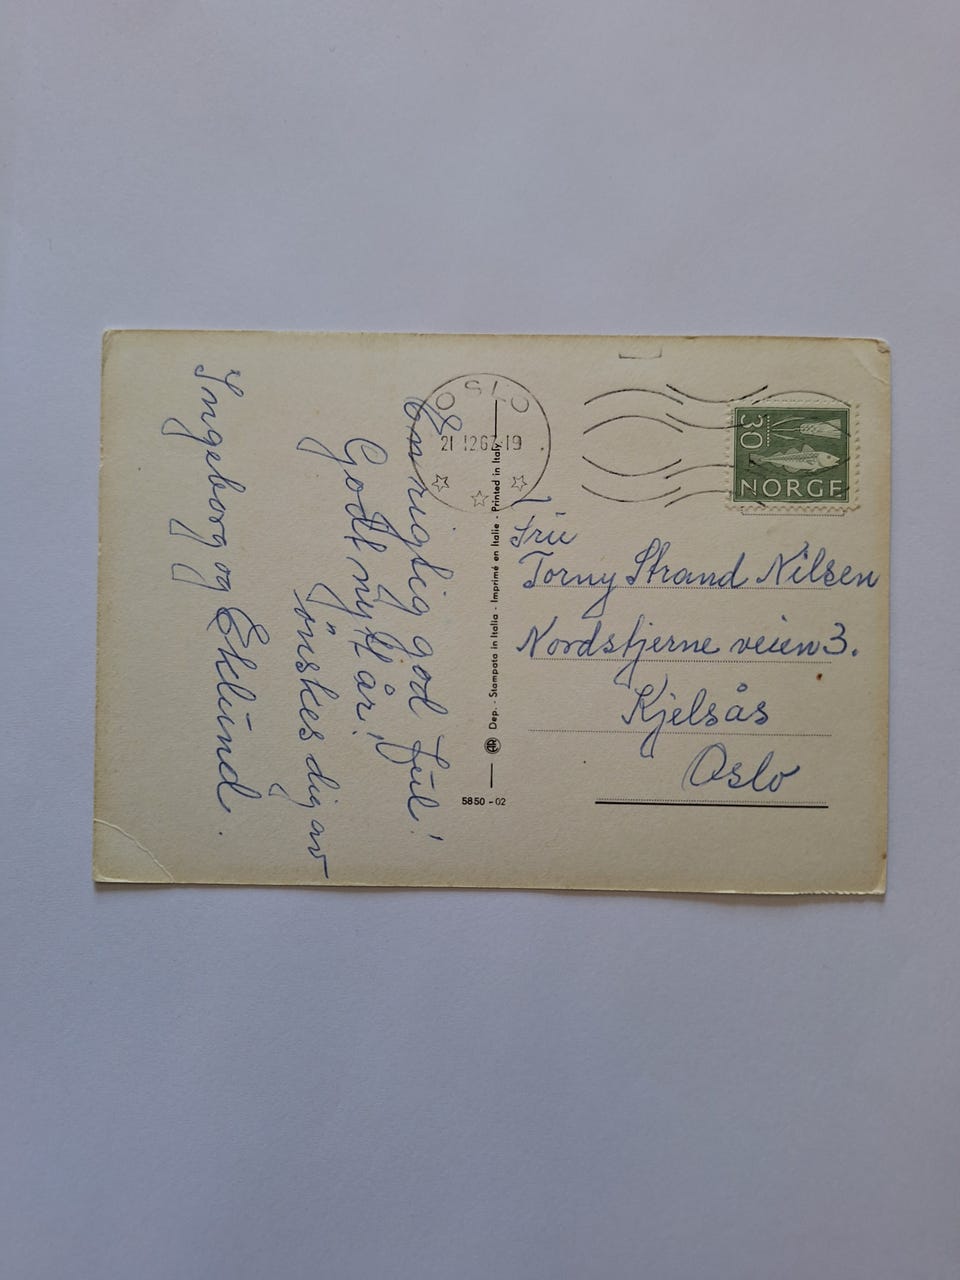 En riglig god Jul!
Godt nytt år!
önskes dig av
Ingeborg og Eklund.
OSLO
21 12 67-19
30
NORGE
Fru
Torny Strand Nilsen
Nordstjerne veien 3.
Kjelsås
Oslo
Dep. - Stampata in Italia - Imprimé en Italie - Printed in Italy
5850-02